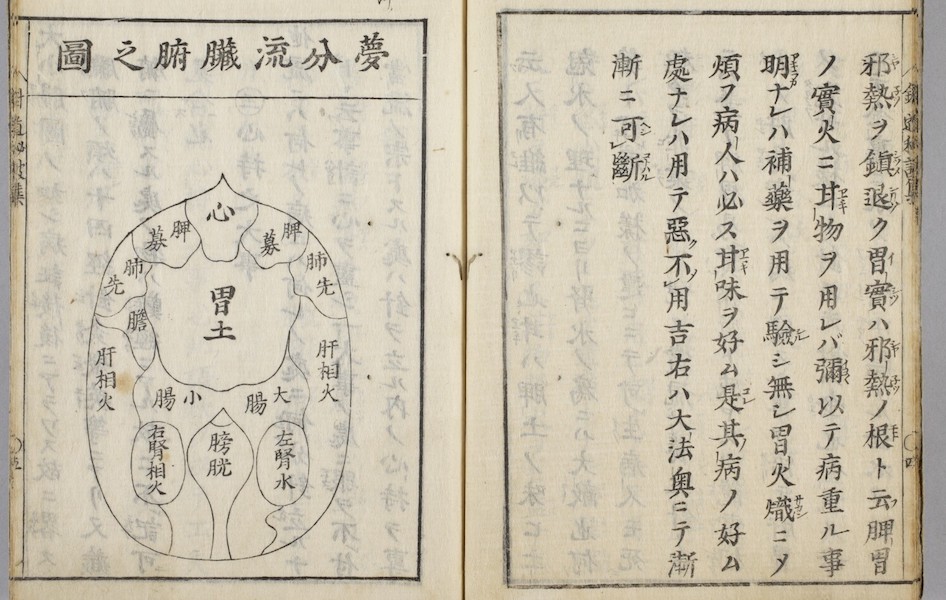 邪熱ヲ鎮退ク胃實ハ邪熱ノ根ト云脾胃
ノ實火ニ甘物ヲ用レバ彌以テ病重ル事
明ナレハ補藥ヲ用テ驗シ無シ胃火熾ニメ
煩フ病人ハ必ス甘味ヲ好ム是其病ノ好ム
處ナレハ用テ惡不用吉右ハ大法奥ニテ漸
漸ニ可斷
夢分流臟腑之圖
心
脾募
脾募
肺先
肺先
胃土
膽
肝相火
肝相火
大腸
小腸
左腎水
膀胱
右腎相火